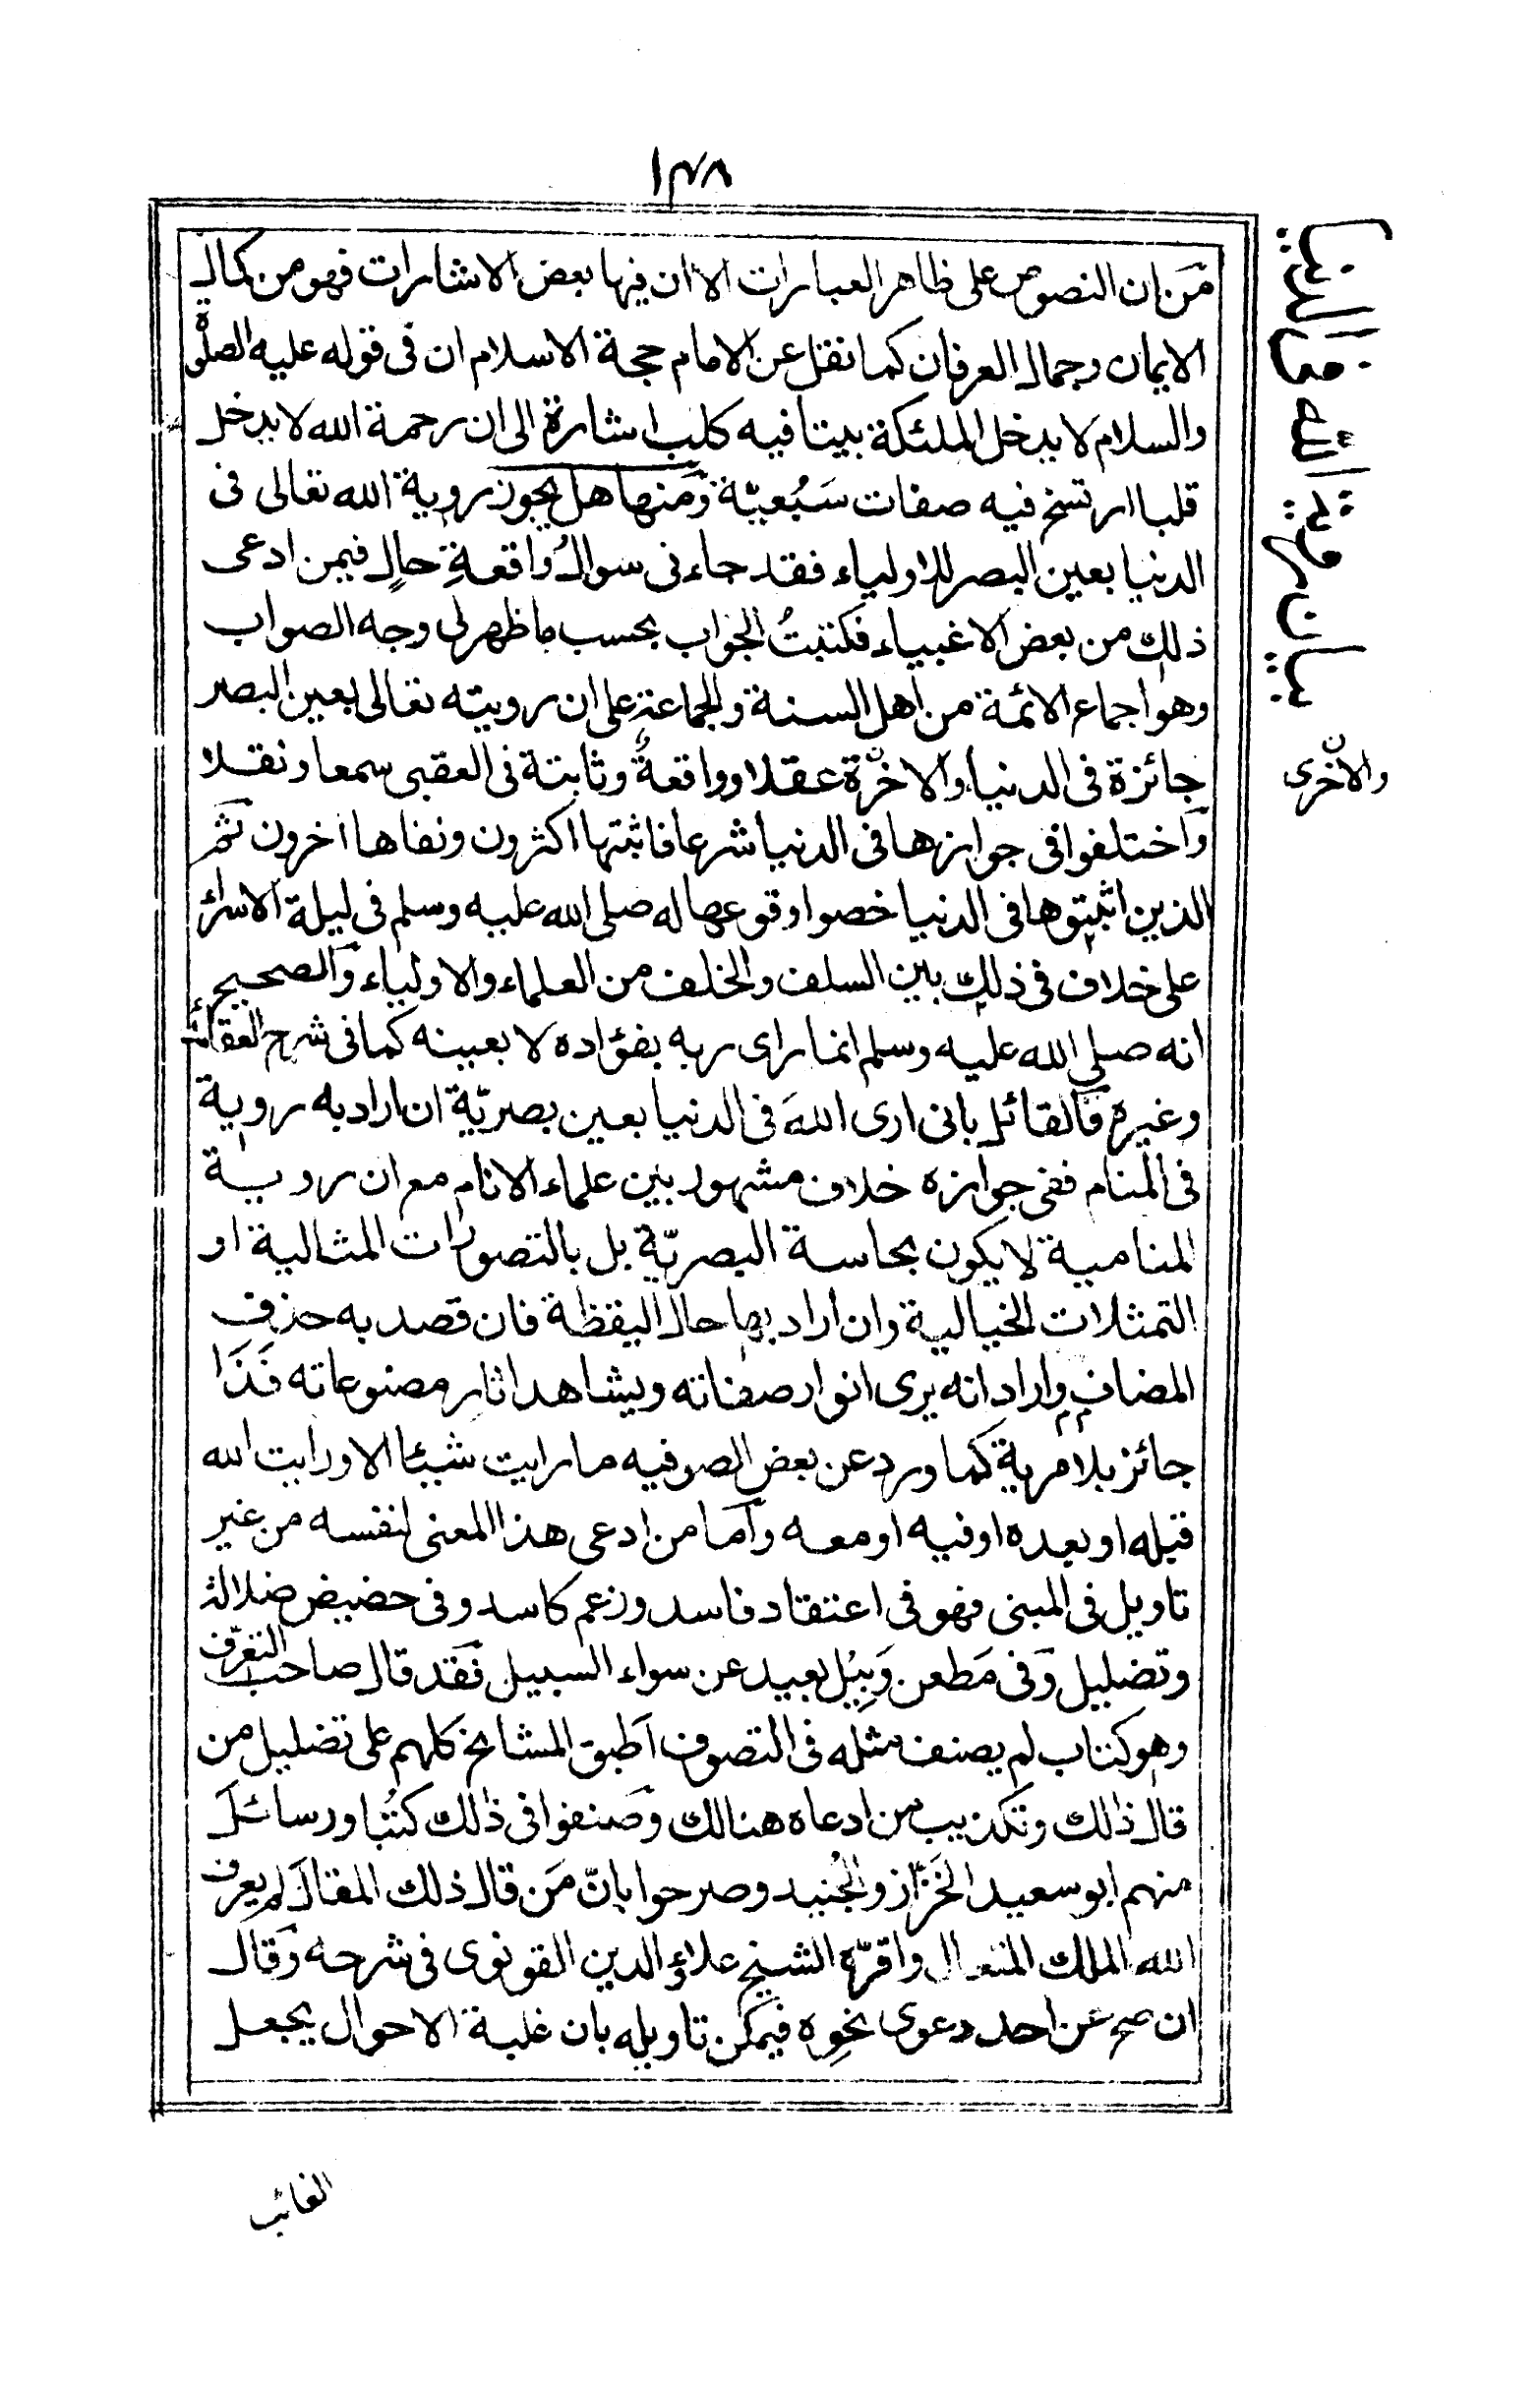 ١٣٨
مَن ان النصوص على ظاهر العبارات الا ان فيها بعض الاشارات فهو من كمال
الايمان وجمال العرفان كما نقل عن الامام حجة الاسلام ان فى قوله عليه الصلوة
والسلام لا يدخل الملئكة بيتا فيه كلب اشارة الى ان رحمة الله لا يدخل
قلبا ارتسخ فيه صفات سَبُعيّة ومنها هل يجوز روية الله تعالى فى
الدنيا بعين البصر للاولياء فقد جاء نى سوالُ واقعةِ حالٍ فيمن ادعى
ذلك من بعض الاغبياء فكتبتُ الجواب بحسب ما ظهر لى وجه الصواب
وهو اجماع الائمة من اهل السنة والجماعة على ان رويته تعالى بعين البصر
جائزة فى الدنيا والاخرة عقلا وواقعةٌ وثابتة فى العقبى سمعا ونقلا
واختلفوا فى جوازها فى الدنيا شرعا فاثبتها اكثرون ونفاها اخرون ثم
الذين اثبتوها فى الدنيا خصوا وقوعها له صلى الله عليه وسلم فى ليلة الاسراء
على خلاف فى ذلك بين السلف والخلف من العلماء والاولياء والصحيح
انه صلى الله عليه وسلم انما راى ربه بفؤاده لا بعينه كما فى شرح العقائد
وغيره فالقائل بانى ارى اللهَ فى الدنيا بعين بصريّة ان اراد به روية
فى المنام ففى جوازه خلاف مشهور بين علماء الانام مع ان روية
المنامية لا يكون بحاسة البصريّة بل بالتصورات المثالية او
التمثلات الخيالية وان اراد بها حال اليقظة فان قصد به حذف
المضاف واراد انه يرى انوار صفاته ويشاهد اثار مصنوعاته فذا
جائز بلا مرية كما ورد عن بعض الصوفيه ما رايت شيئا الا ورايت الله
قبله او بعده او فيه او معه واما من ادعى هذا المعنى لنفسه من غير
تاويل فى المبنى فهو فى اعتقاد فاسد وزعم كاسد وفى حضيض ضلالة
وتضليل وفى مَطعن وَبِيْل بعيد عن سواء السبيل فقد قال صاحب التعرّف
وهو كتاب لم يصنف مثله فى التصوف اطبق المشايخ كلهم على تضليل من
قال ذالك وتكذيب من ادعاه هنالك وصنفوا فى ذالك كتُبا ورسائلَ
منهم ابو سعيد الخَرّاز والجُنيد وصرحوا بانّ مَن قال ذلك المقالَ لم يعرف
الله الملك المتعال واقرّه الشيخ علاؤ الدين القونوى فى شرحه وقال
ان صح عن احد دعوى نحوِه فيمكن تاويله بان غلبة الاحوال يجعل
والاخرى
الغائب